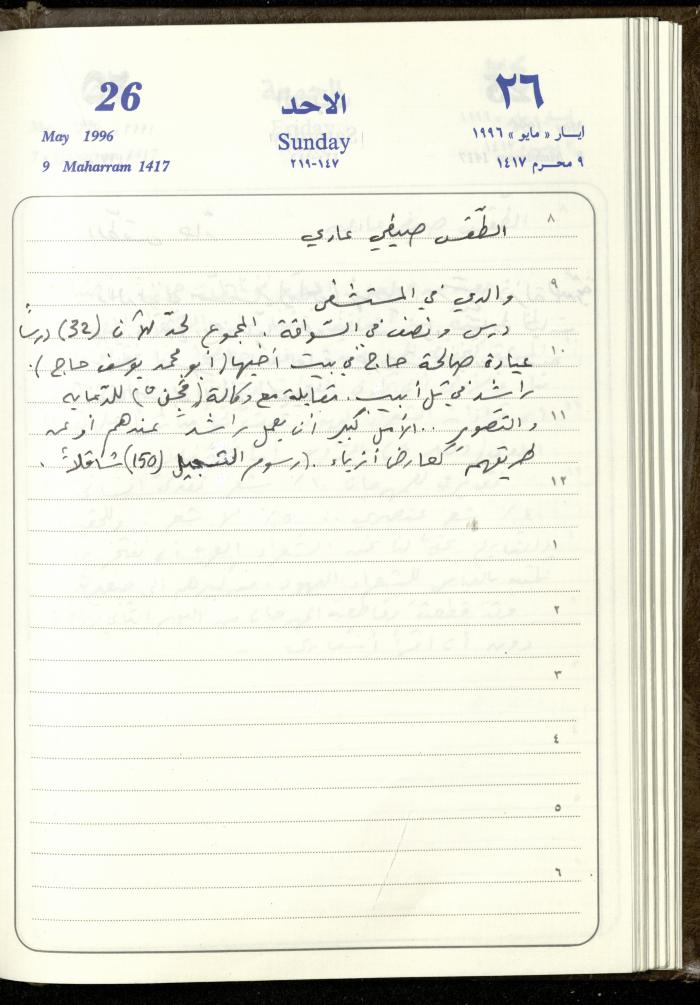 26
الاحد
٢٦
May 1996
Sunday
ايار « مايو » ١٩٩٦
9 Maharram 1417
٢١٩-١٤٧
٩ محرم ١٤١٧
٨
الطّقس صيفي عادي
٩
والدي في المستشفى
درس ونصف في السّواقة . المجموع لحدّ الآن (32) درساً
١٠
عيادة صالحة حاج في بيت أخيها (أبو محمد يوسف حاج ) .
راشد في تل أبيب . مقابلة مع وكالة للدّعايه
١١
والتّصوير .. الأمل كبير أن يعمل راشد عندهم أو عن
طريقهم كعارض أزياء . (رسوم التسجيل (150) شاقلاً .
١٢
١
٢
٣
٤
٥
٦